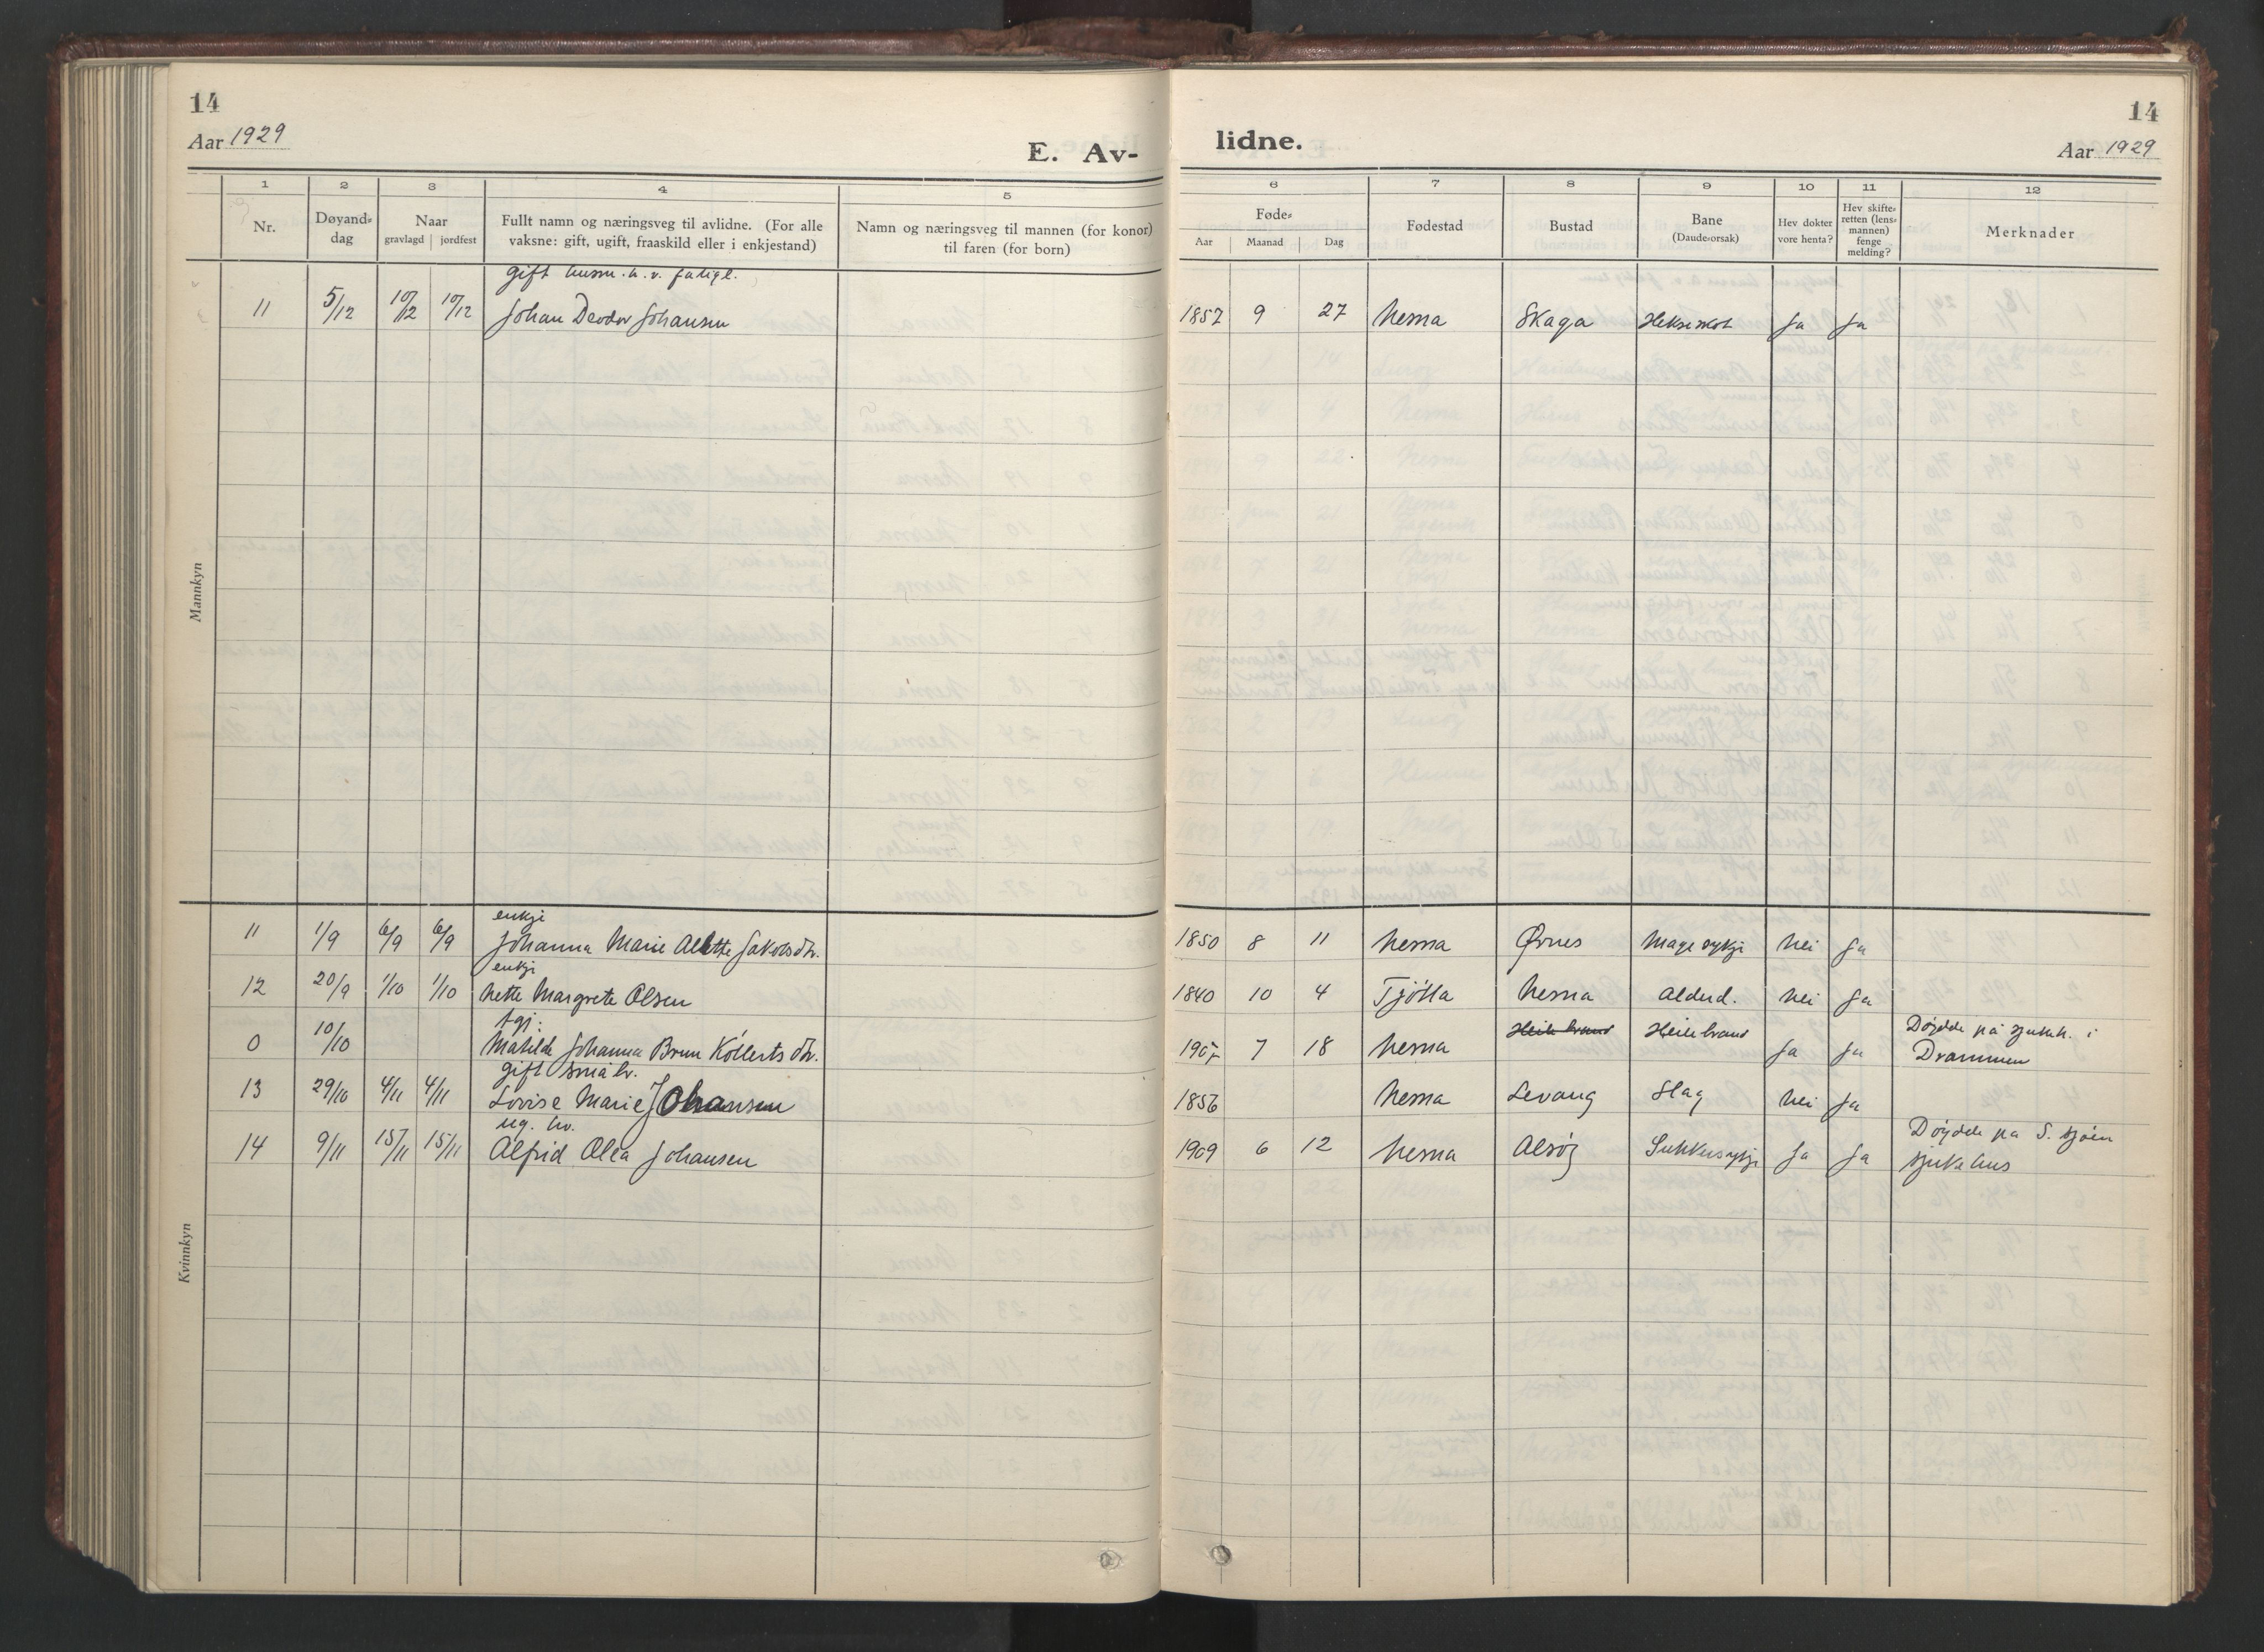 14
Aar 1929
E. Av-
1 2 3 4 5
Nr. Døyand-dag Naar gravlagd jordfest Fullt namn og næringsveg til avlidne. (For alle vaksne: gift, ugift, fraaskild eller i enkjestand) Namn og næringsveg til mannen (for konor) til faren (for born)
Mannkyn
gift husm. h. v. fatigl.
11 5/12 10/12 10/12 Johan Deodor Johansen
Kvinnkyn
enkji
11 1/9 6/9 6/9 Johanna Marie Alette Jakobsdtr.
enkji
12 20/9 1/10 1/10 Nette Margrete Olsen
tgj:
0 10/10 Matilde Johanna Brun Kollertsdtr.
gift småbr.
13 29/10 4/11 4/11 Lovise Marie Johansen
ug. hv.
14 9/11 15/11 15/11 Alfrid Olea Johansen
14
lidne.
Aar 1929
6 7 8 9 10 11 12
Føde- Aar Maanad Dag Fødestad Bustad Bane (Daudeorsak) Hev dokter vore henta? Hev skifteretten (lensmannen) fenge melding? Merknader
1857 9 27 Nesna Skaga Ja Ja
1850 8 11 Nesna Ørnes Magesykji Nei Ja
1840 10 4 Tjötta Nesna Alderd. Nei Ja
7 18 Nesna Ja Ja Döydde på sjukeh. i
Drammen
1856 Nesna Levang Slag Nei Ja
1909 6 12 Nesna Alsöy Sukkersykji Ja Ja Döydde på S. sjöen
sjukehus